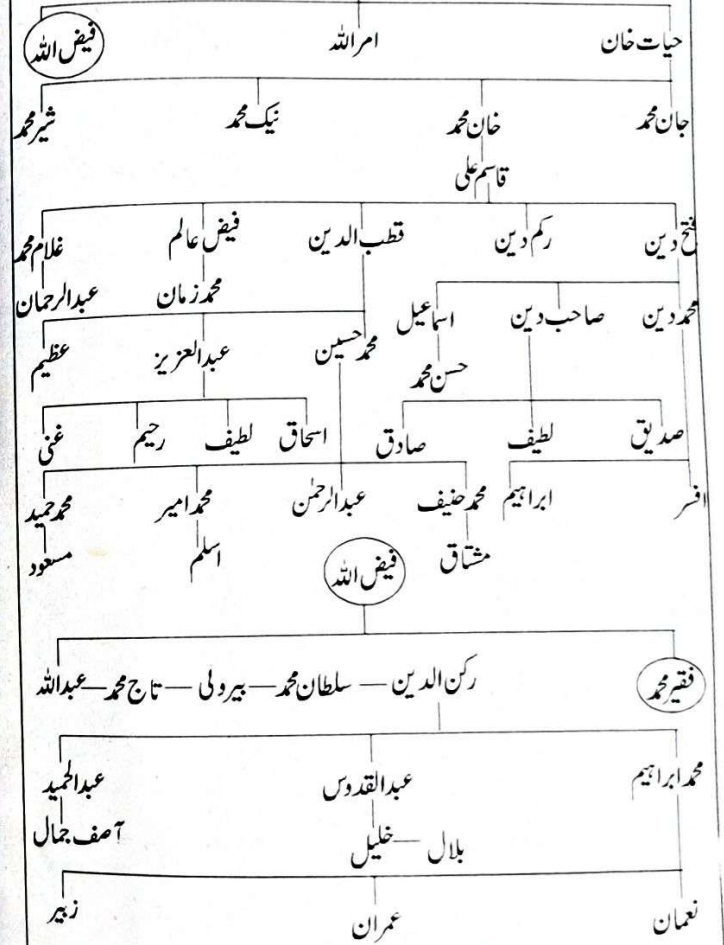 حیات خان امر اللہ فیض اللہ
جان محمد خان محمد نیک محمد شیر محمد
قاسم علی
فتح دین رکم دین قطب الدین فیض عالم غلام محمد
محمد دین صاحب دین اسماعیل محمد زمان عبدالرحمان
حسن محمد محمد حسین عبدالعزیز عظیم
صدیق لطیف صادق اسحاق لطیف رحیم غنی
افسر ابراہیم محمد حنیف عبدالرحمٰن محمد امیر محمد حمید
مشتاق اسلم مسعود
فیض اللہ
فقیر محمد رکن الدین — سلطان محمد — بیرولی — تاج محمد — عبداللہ
محمد ابراہیم عبدالقدوس عبدالحمید
بلال — خلیل آصف جمال
نعمان عمران زبیر